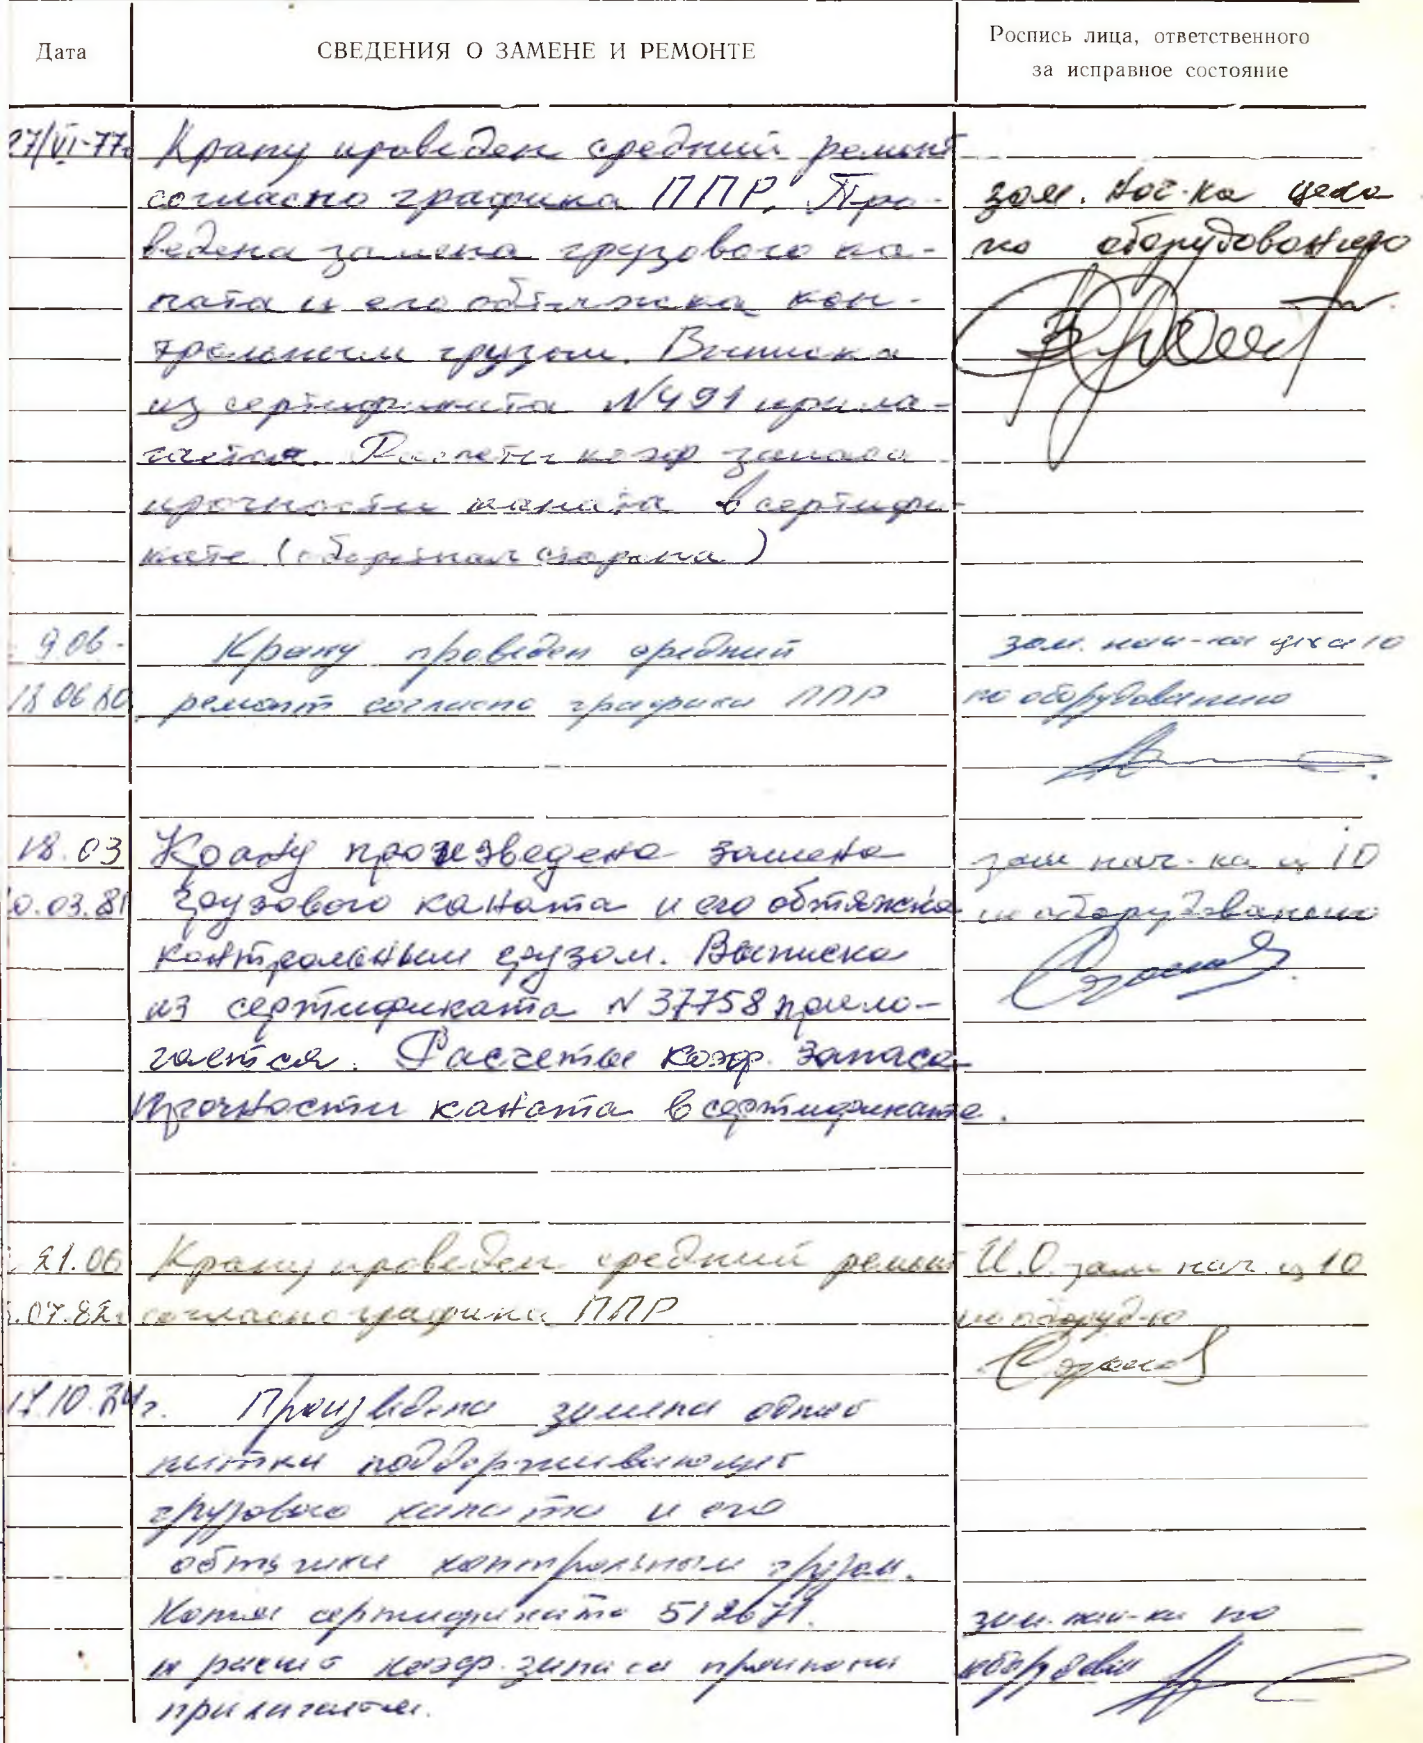 Дата
СВЕДЕНИЯ О ЗАМЕНЕ И РЕМОНТЕ
Роспись лица, ответственного
за исправное состояние
27/VI-77г
Крану проведен средний ремонт
согласно графика ППР. Про-
ведена замена грузового ка-
ната и его обтяжка кон-
трольным грузом. Выписка
из сертификата N491 прила-
гается. Расчеты коэф запаса
прочности каната в сертифи-
кате (оборотная сторона)
зам. нач-ка цеха
по оборудованию
9.06-
18.06.80
Крану проведен средний
ремонт согласно графика ППР
зам. нач-ка цеха 10
по оборудованию
18.03
0.03.81
Крану произведена замена
грузового каната и его обтяжка
контрольным грузом. Выписка
из сертификата N 37758 прила-
гается. Расчеты коэф. запаса
прочности каната в сертификате.
зам нач-ка ц 10
по оборудованию
21.06
.07.82г
Крану проведен средний ремонт
согласно графика ППР
И.О. зам нач ц 10
по оборуд-ю
17.10.84г.
Произведена замена одной
нитки поддерживающего
грузового каната и его
обтяжка контрольным грузом.
Копия сертификата 512671.
и расчет коэф. запаса прочности
прилагается.
зам. нач-ка по